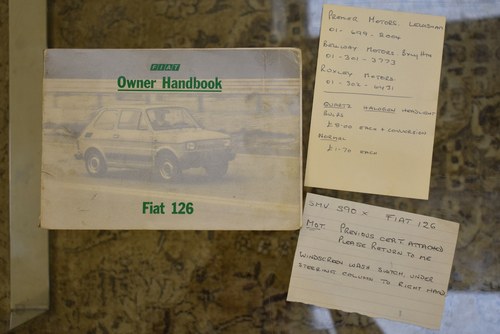 FIAT
Owner Handbook
Fiat 126
PREMIER MOTORS LEWISHAM
01-699-8006
BELLWAY MOTORS
01-301-3773
ROXLEY MOTORS.
01-302-6431
QUARTZ HALOGEN HEADLIGHT
BULBS
£8.00 EACH + CONVERSION
NORMAL
£1-70 EACH
GMV 590 X FIAT 126
MOT. PREVIOUS CERT. ATTACHED
PLEASE RETURN TO ME
WINDSCREEN WASH SWITCH UNDER
STEERING COLUMN TO RIGHT HAND